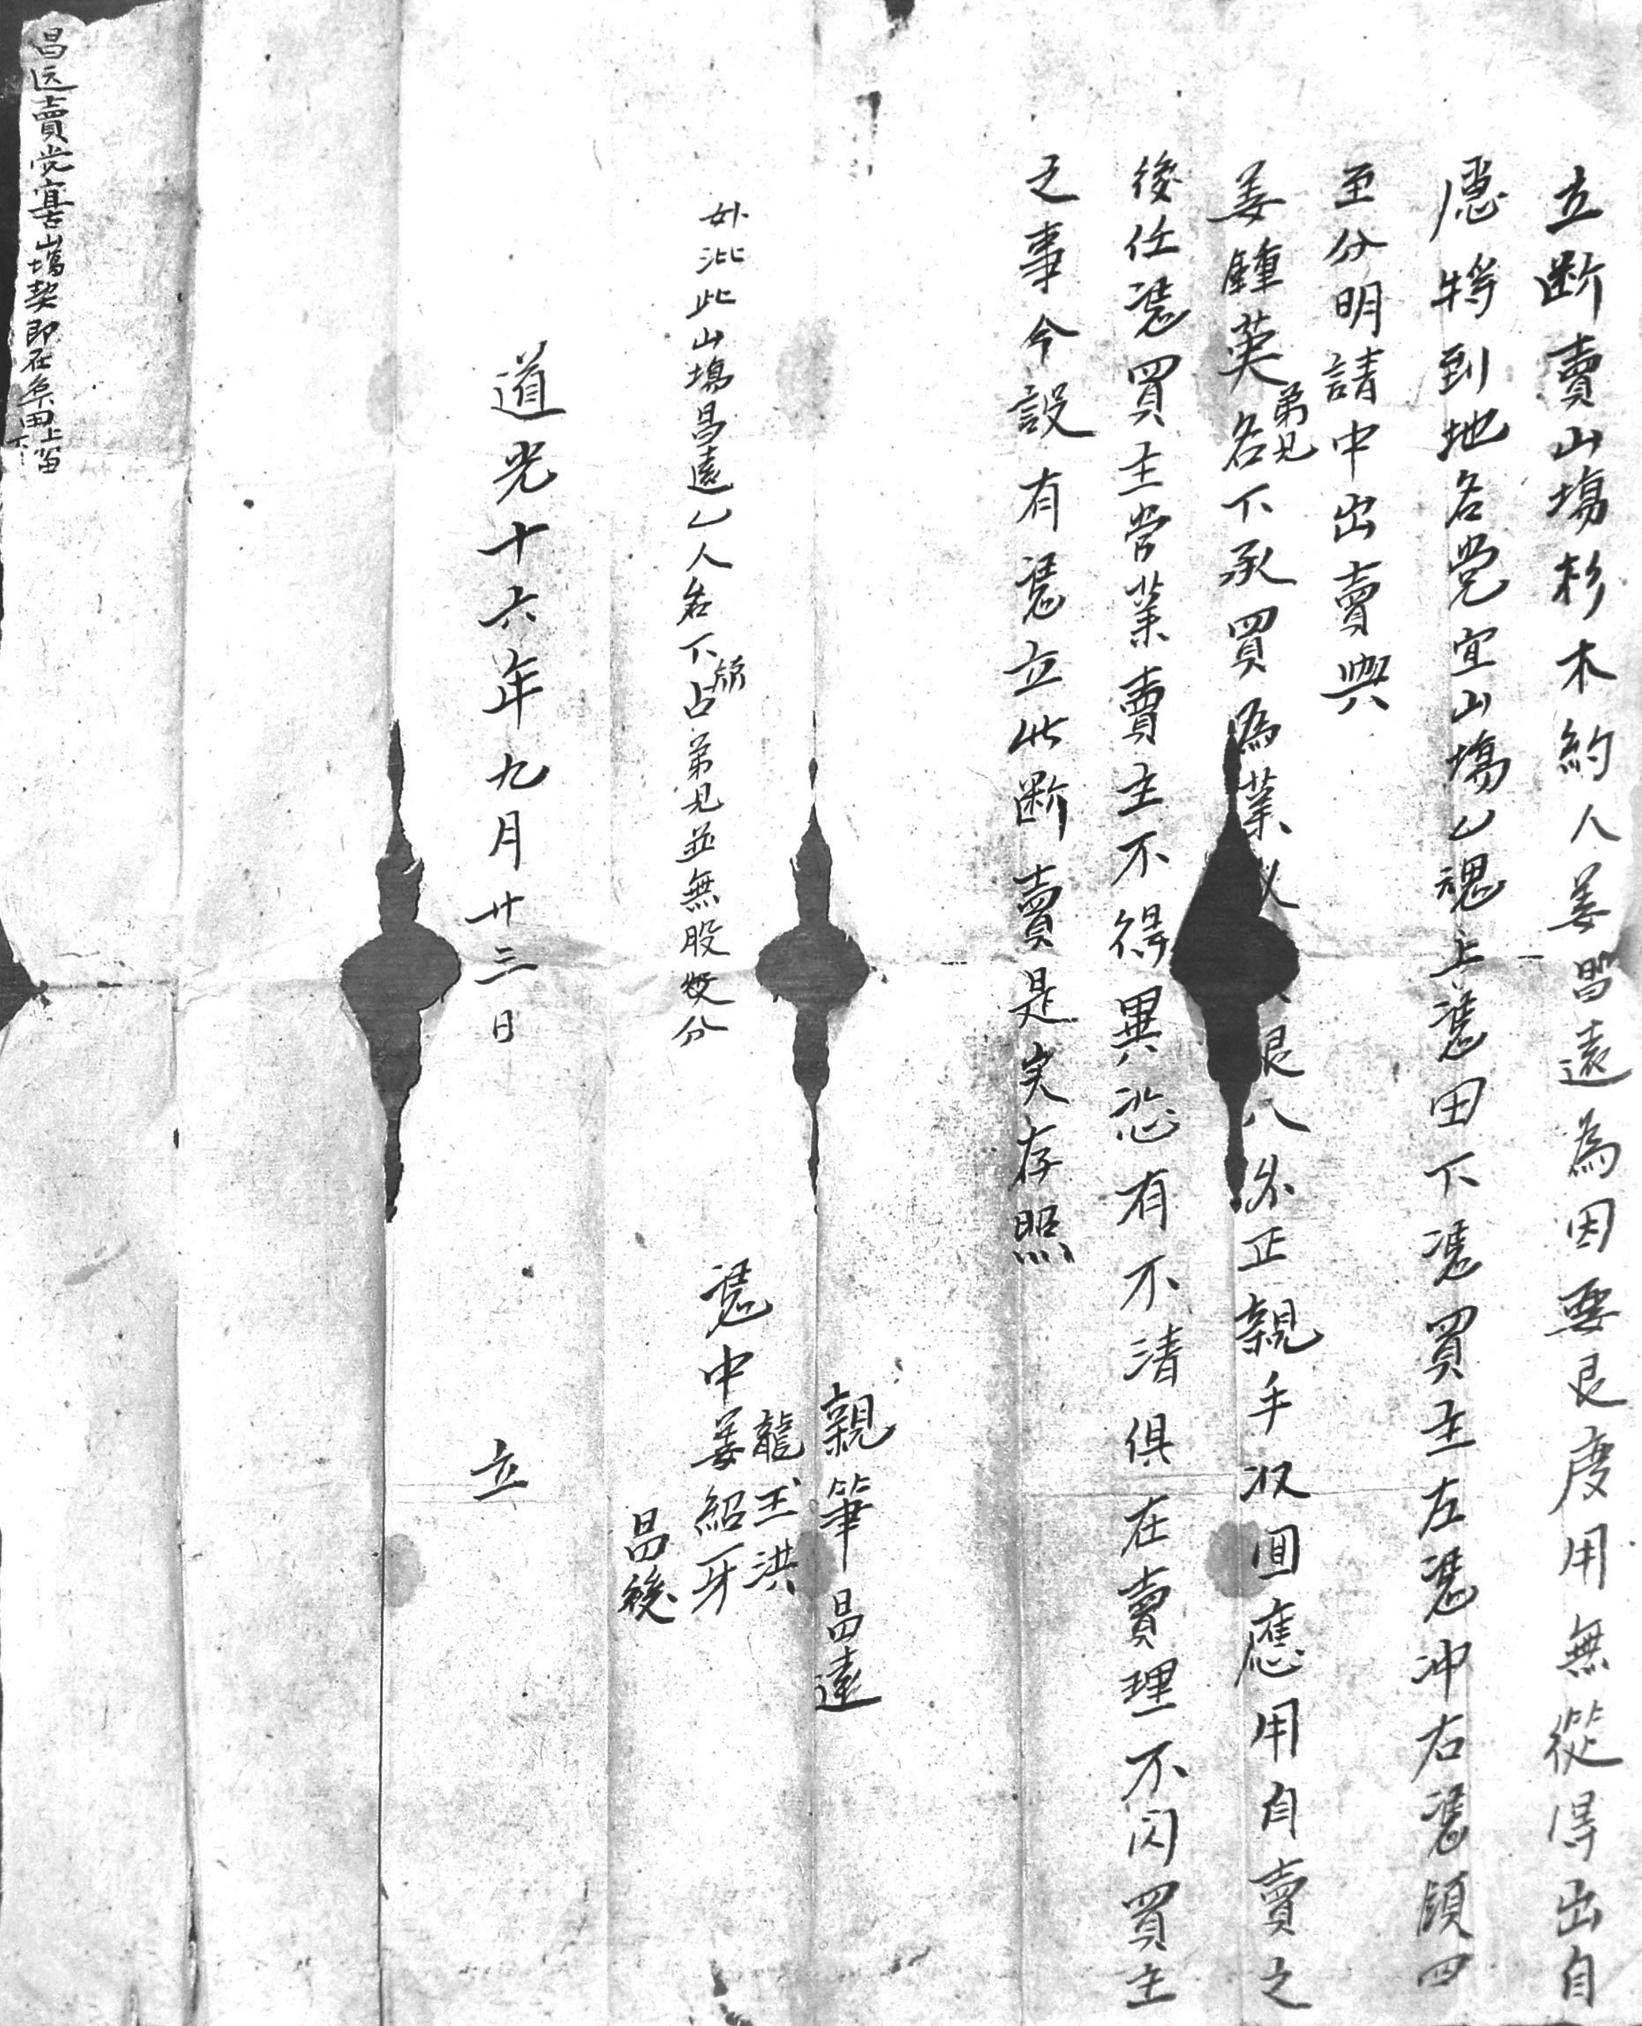 立断賣山塲杉木約人姜昌遠為因要艮度用無從得出自
愿将到地名党宜山塲乙魂上凴田下凴買主左凴冲右凴嶺四
至分明請中出賣與
姜鍾英弟兄名下承買為業 艮八 正親手收回應用自賣之
後任凴買主管業賣主不得異 有不清俱在賣理不閃買主
之事今設有凴立此断賣是実存照
外批此山塲昌遠乙人名下所占弟兄並無股 分
親筆昌遠
龍玉洪
凴中姜紹牙
昌後
道光十六年九月廿三日 立
昌远賣党 山塲契即在 田上
下